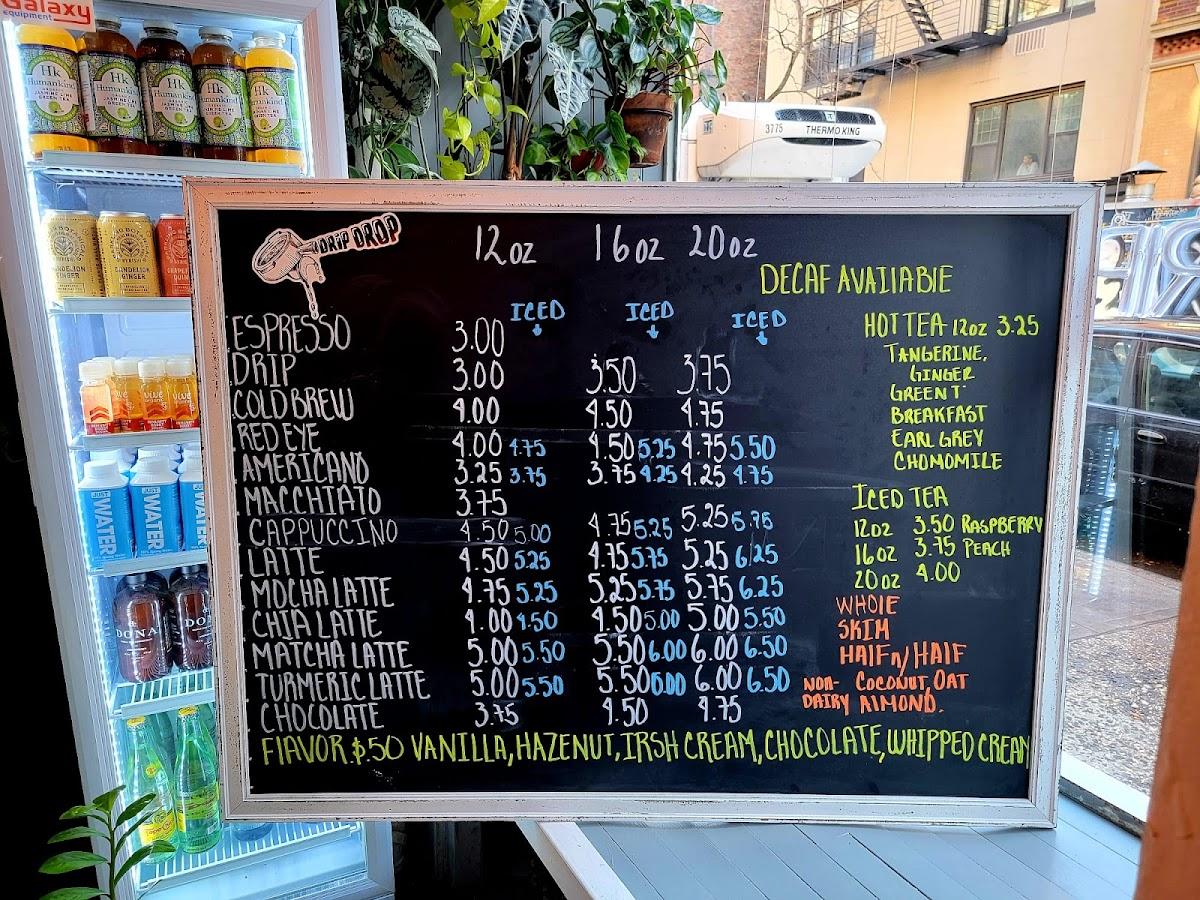 Galaxy
equipment
Hk
Humankind
Hk
Humankind
Hk
Humankind
Hk
Humankind
Hk
Humankind
3775 THERMO KING
DANDELION
GINGER
DANDELION
GINGER
JUST
WATER
JUST
WATER
JUST
WATER
DONA
DONA
DRIP DROP
12oz 16oz 20oz
DECAF AVAILABLE
ICED ICED ICED
ESPRESSO 3.00
DRIP 3.00 3.50 3.75
COLD BREW 4.00 4.50 4.75
RED EYE 4.00 4.75 4.50 5.25 4.75 5.50
AMERICANO 3.25 3.75 3.75 4.25 4.25 4.75
MACCHIATO 3.75
CAPPUCCINO 4.50 5.00 4.75 5.25 5.25 5.75
LATTE 4.50 5.25 4.75 5.75 5.25 6.25
MOCHA LATTE 4.75 5.25 5.25 5.75 5.75 6.25
CHIA LATTE 4.00 4.50 4.50 5.00 5.00 5.50
MATCHA LATTE 5.00 5.50 5.50 6.00 6.00 6.50
TURMERIC LATTE 5.00 5.50 5.50 6.00 6.00 6.50
CHOCOLATE 3.75 4.50 4.75
FLAVOR $.50 VANILLA, HAZENUT, IRSH CREAM, CHOCOLATE, WHIPPED CREAM
HOT TEA 12oz 3.25
TANGERINE,
GINGER
GREEN T
BREAKFAST
EARL GREY
CHOMOMILE
ICED TEA
12oz 3.50 RASPBERRY
16oz 3.75 PEACH
20oz 4.00
WHOLE
SKIM
HALF n/ HALF
NON- COCONUT, OAT
DAIRY ALMOND.